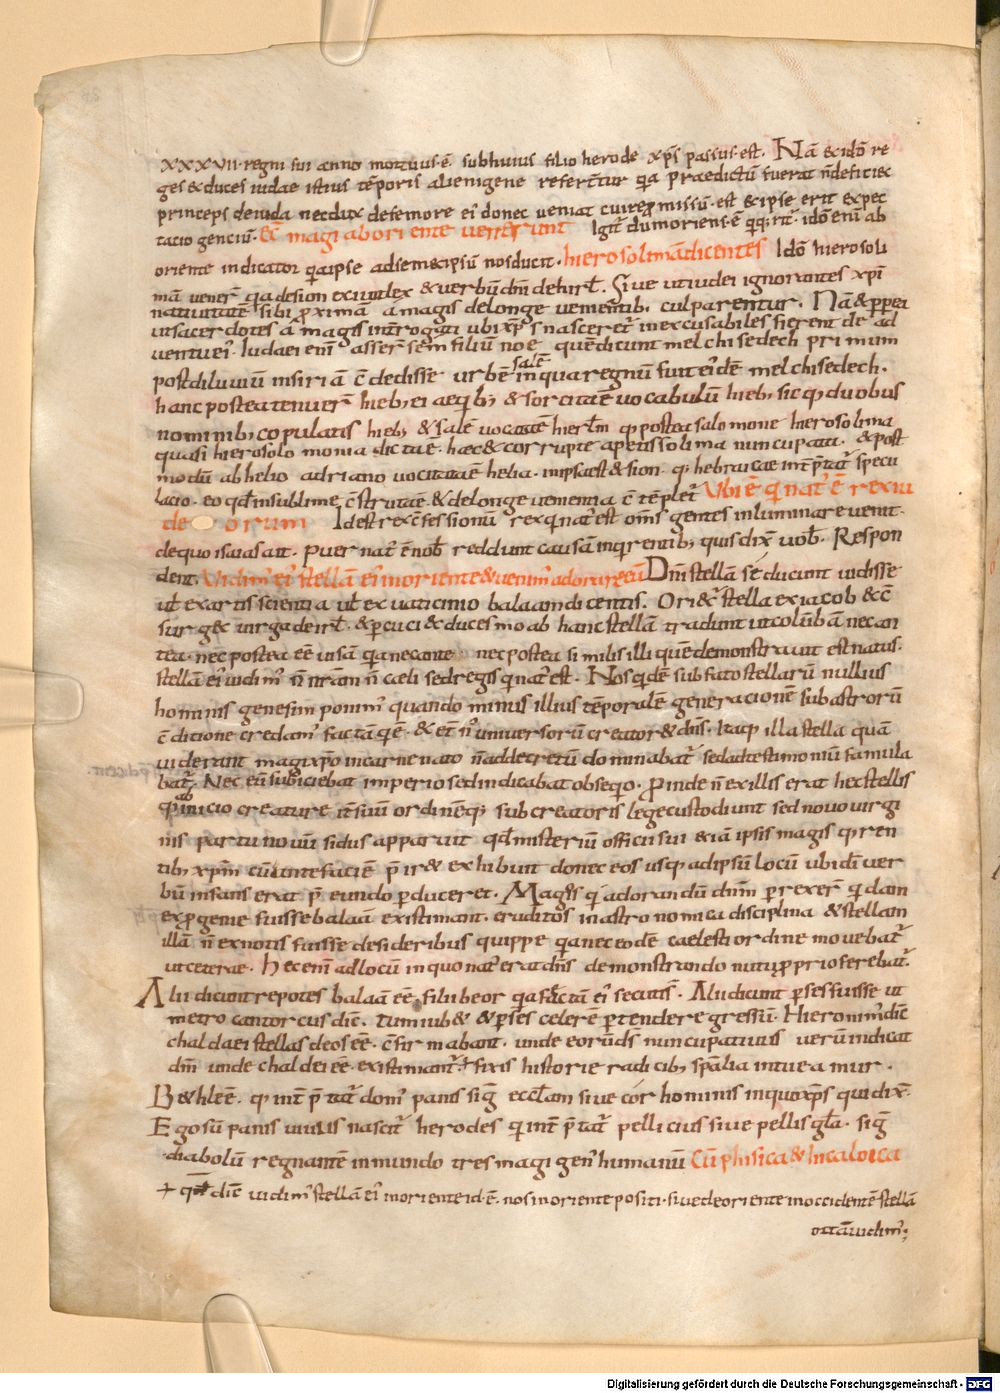 XXXVII· regni sui anno mortuus·ē· sub huius filio herode xp̄s passus·est· Nā & idō re
ges & duces iudae istius tēporis alienigene referent̄ur q̄a praedictū fuerat n̄ deficiec
princeps de iuda nec dux de femore ei' donec veniat cui rep̱missū·est & ipse erit expec
tacio genciū· Ecc̄ magi ab oriente venerunt Igit̄ dū moriens·ē idō enī ab
oriente indicator q̄a ipse ad semetipsū nos ducit· hierosolimā dicentes Idō hierosoli
mā vener̄ q̄a de sion exi& lex & verbū dn̄i de hirl̄· Siue ut iudei ignorantes xp̄i
natiuitatē sibi p̱xima a magis de longe venientib; culparentur· Nā &
ut sacerdotes a magis int̄rogati ubi xp̄s nasceret̄ inexcusabiles fierent de ad
ventu ei'· Iudaei enī asser̄ sem filiū noe quē dicunt melchisedech primum
post diluuiū in siriā c̄dedisse urbē salē in qua regnū fuit ei'dē melchisedech·
hanc postea tenuer̄ hieb;ei aeq̄lib; & sorcita ē vocabulū hieb; sic q; duobus
nominib; copulatis hieb; & salē vocata ē hierl̄m q; postea salomone hierosolima
quasi hierosolomonia dicta ē· haec & corrupte a poetis solima nuncupata· & post
modū ab helio adriano vocitata ē helia· ipsa est & sion· q; hebraicae int̄p̄tat̄ specu
lacio· eo qd̄ in sublime c̄structa ē· & de longe venientia c̄tēplet̄ Ubi ē q̄ nat' ē rex iu
de orum Id est rex c̄fessionū rex q̄ nat' est om̄s gentes inluminare venit·
de quo isaias ait· Puer nat' ē nob̄ reddunt causā inq̄rentib; quis dix̄ uob̄· Respon
dent· Vidim' ei' stellā ei' in oriente & venim' adorare eū Dn̄i stellā se ducunt vidisse
ut̄ ex artis scientia ut̄ ex vaticinio balaam dicentis· Oriet̄ stella ex iacob & c̄
surg& virga de irl̄· & p̱cuci& duces moab hanc stellā tradunt ut colūbā nec an
tea· nec postea eē visā q̄a nec ante nec postea similis illi quē demonstrauit est natus·
stellā ei' vidim' n̄ n̄ram n̄ caeli sed regis q̄ nat' est· Nos q̄dē sub fato stellarū nullius
hominis genesim ponim' quando minus illius tēporalē generacionē sub astrorū
c̄dicione credam' factā q; ē· & ē n̄ uniuersorū creator & dn̄s· Itaq; illa stella quā
viderunt magi xp̄o incarne nato n̄ ad decretū dominabat̄ sed ad testimoniū famula
bat̄· Nec eū subiciebat imperio sed indicabat obseq̄o· Proinde n̄ ex illis erat hec stellis
q; ab inicio creature it̄n suū ordinēq; sub creatoris lege custodiunt sed nouo virgi
nis partu nouū sidus apparuit qd̄ misteriū officii sui &iā ipsis magis q̄ren
tib; xp̄m cū ante faciē p̄ir& exhibuit donec eos usq; ad ipsū locū ubi dī ver
bū infans erat p̄eundo p̱duceret· Mag̱ q̄ adorandū dn̄m p̱rexer̄ q̄dam
ex p̱genie fuisse balaā existimant· eruditos in astronomica disciplina & stellam
illā n̄ ex notis fuisse desideribus quippe q̄a nec eodē caelesti ordine mouebat̄
ut ceterae· Hec enī ad locū in quo nat' erat dn̄s demonstrando nutu p̱prio ferebat̄·
Alii dicunt repotes balaā eē filii beor q̄a factā ei' secuti s̄· Alii dicunt p̱ses fuisse ut
metro cantor cus dic̄· tum iub& & p̱ses celerē p̱tendere gressū· Hieronim' dic̄
chaldaei stellas deos eē· c̄firmabant· unde eorū ds̄ nuncupatiuus verū indicat
dm̄ unde chaldei eē· existimant̄ + fixis historie radicib; sp̄alia intueamur·
B&hleē· q; int̄p̄tat̄ dom' panis sig̱ eccl̄am siue cor hominis in quo xp̄s qui dix̄·
Ego sū panis uiuus nascit̄ herodes q̄ int̄p̄tat̄ pellicius siue pellis gl̄a· sig̱
diabolū regnantē in mundo tres magi gen' humanū Cū phisica & in caloica
+ qd̄ dic̄ vidim' stellā ei' in oriente id·ē· nos in oriente positi· siue de oriente in occidentē stellā
ortā vidim';
Digitalisierung gefördert durch die Deutsche Forschungsgemeinschaft - DFG